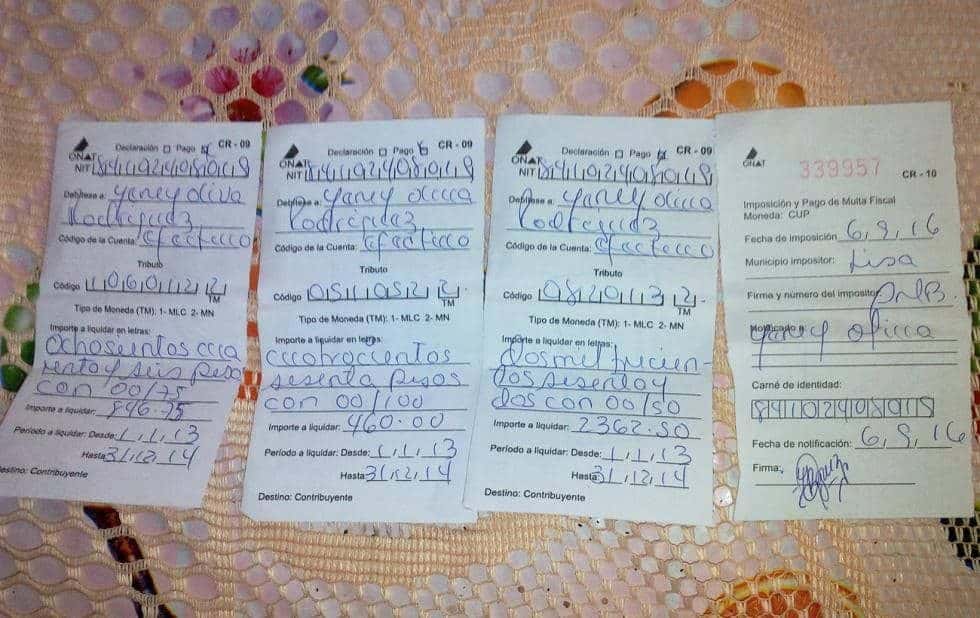 Declaración Pago CR - 09
ONAT
NIT 84102408019
Debítese a: Yaney Oliva
Rodríguez
Código de la Cuenta: Efectivo
Tributo
Código 1060122
TM
Tipo de Moneda (TM): 1- MLC 2- MN
Importe a liquidar en letras:
con 00/75
Importe a liquidar: 846.75
Período a liquidar: Desde: 1,1,13
Hasta 31,12,14
Destino: Contribuyente
Declaración Pago CR - 09
ONAT
NIT 84102408019
Debítese a: Yaney
Rodríguez
Código de la Cuenta: Efectivo
Tributo
Código 0510522
TM
Tipo de Moneda (TM): 1- MLC 2- MN
Importe a liquidar en letras:
cuatrocientos
sesenta pesos
con 00/100
Importe a liquidar: 460.00
Período a liquidar: Desde: 1,1,13
Hasta 31,12,14
Destino: Contribuyente
Declaración Pago CR - 09
ONAT
NIT 84102408019
Debítese a: Yaney
Rodríguez
Código de la Cuenta: Efectivo
Tributo
Código 0820132
TM
Tipo de Moneda (TM): 1- MLC 2- MN
Importe a liquidar en letras:
dos mil trecien-
tos sesenta y
dos con 00/50
Importe a liquidar: 2362.50
Período a liquidar: Desde: 1,1,13
Hasta: 31,12,14
Destino: Contribuyente
ONAT
339957
CR - 10
Imposición y Pago de Multa Fiscal
Moneda: CUP
Fecha de imposición 6,9,16
Municipio impositor: Lisa
Firma y número del impositor
Notificado a
Yaney
Carné de identidad:
84102408019
Fecha de notificación: 6,9,16
Firma: